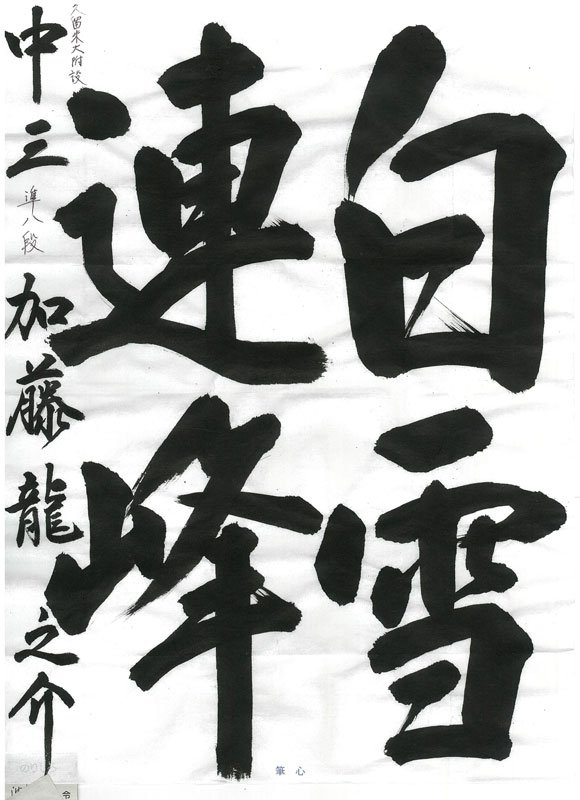 白雪
連峰
久留米大附設
中三 準八段 加藤龍之介
筆心
のりしろ
令